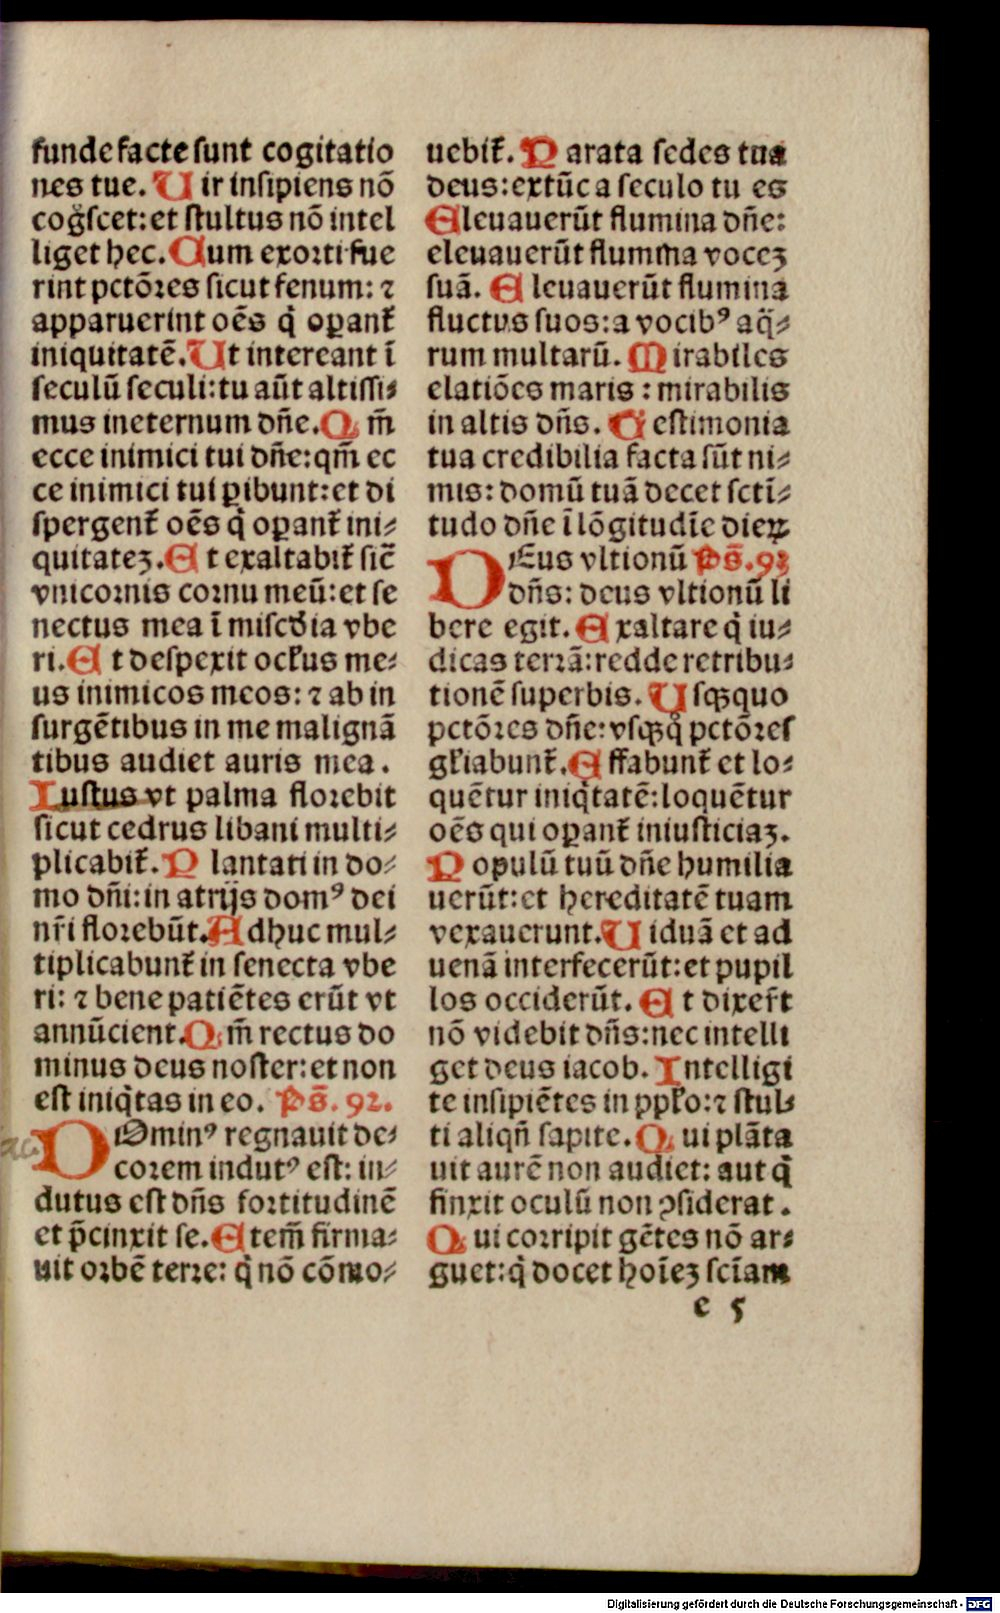 funde facte sunt cogitatio
nes tue. Uir insipiens nō
cog̃scet: et stultus nō intel
liget hec. Cum exorti fue
rint pctōres sicut fenum: ⁊
apparuerint oēs q̇ oꝑant᷑
iniquitatē. Ut intereant ī
seculū seculi: tu aūt altissi⸗
mus ineternum dn̄e. Qm̄
ecce inimici tui dn̄e: qm̄ ec
ce inimici tui ꝑibunt: et di
spergent᷑ oēs q̇ oꝑant᷑ ini⸗
quitateꝫ. Et exaltabit᷑ sic̄
vnicornis cornu meū: et se
nectus mea ī misc̄dia vbe
ri. Et despexit ocl̓us me⸗
us inimicos meos: ⁊ ab in
surgētibus in me malignā
tibus audiet auris mea.
Iustus vt palma florebit
sicut cedrus libani multi⸗
plicabit᷑. Plantati in do⸗
mo dn̄i: in atrijs domꝰ dei
nr̄i florebūt. Adhuc mul⸗
tiplicabunt᷑ in senecta vbe
ri: ⁊ bene patiētes erūt vt
annūcient. Qm̄ rectus do
minus deus noster: et non
est iniq̇tas in eo. Ps̄. 92.
DOminꝰ regnauit de⸗
corem indutꝰ est: in⸗
dutus est dn̄s fortitudinē
et p̄cinxit se. Etem̄ firma⸗
uit orbē terre: q̇ nō cōmo⸗
uebit᷑. Parata sedes tua
deus: extūc a seculo tu es
Eleuauerūt flumina dn̄e:
eleuauerūt flumina voceꝫ
suā. Eleuauerūt flumina
fluctus suos: a vocibꝰ aq̄⸗
rum multarū. Mirabiles
elatiōes maris: mirabilis
in altis dn̄s. Testimonia
tua credibilia facta sūt ni⸗
mis: domū tuā decet sctī⸗
tudo dn̄e ī lōgitudīe dieꝝ
DEus vltionū Ps̄. 93
dn̄s: deus vltionū li
bere egit. Exaltare q̇ iu⸗
dicas terrā: redde retribu⸗
tionē superbis. Usqꝫquo
pctōres dn̄e: vsqꝫq̊ pctōres
gl̓iabunt᷑. Effabunt᷑ et lo⸗
quētur iniq̇tatē: loquētur
oēs qui oꝑant᷑ iniusticiaꝫ.
Populū tuū dn̄e humilia
uerūt: et hereditatē tuam
vexauerunt. Uiduā et ad
uenā interfecerūt: et pupil
los occiderūt. Et dixer̄t
nō videbit dn̄s: nec intelli
get deus iacob. Intelligi
te insipiētes in ppl̓o: ⁊ stul⸗
ti aliqn̄ sapite. Qui plāta
uit aurē non audiet: aut q̇
finxit oculū non ↄsiderat.
Qui corripit gētes nō ar⸗
guet: q̇ docet hoīeꝫ scīam
e 5
Digitalisierung gefördert durch die Deutsche Forschungsgemeinschaft - DFG